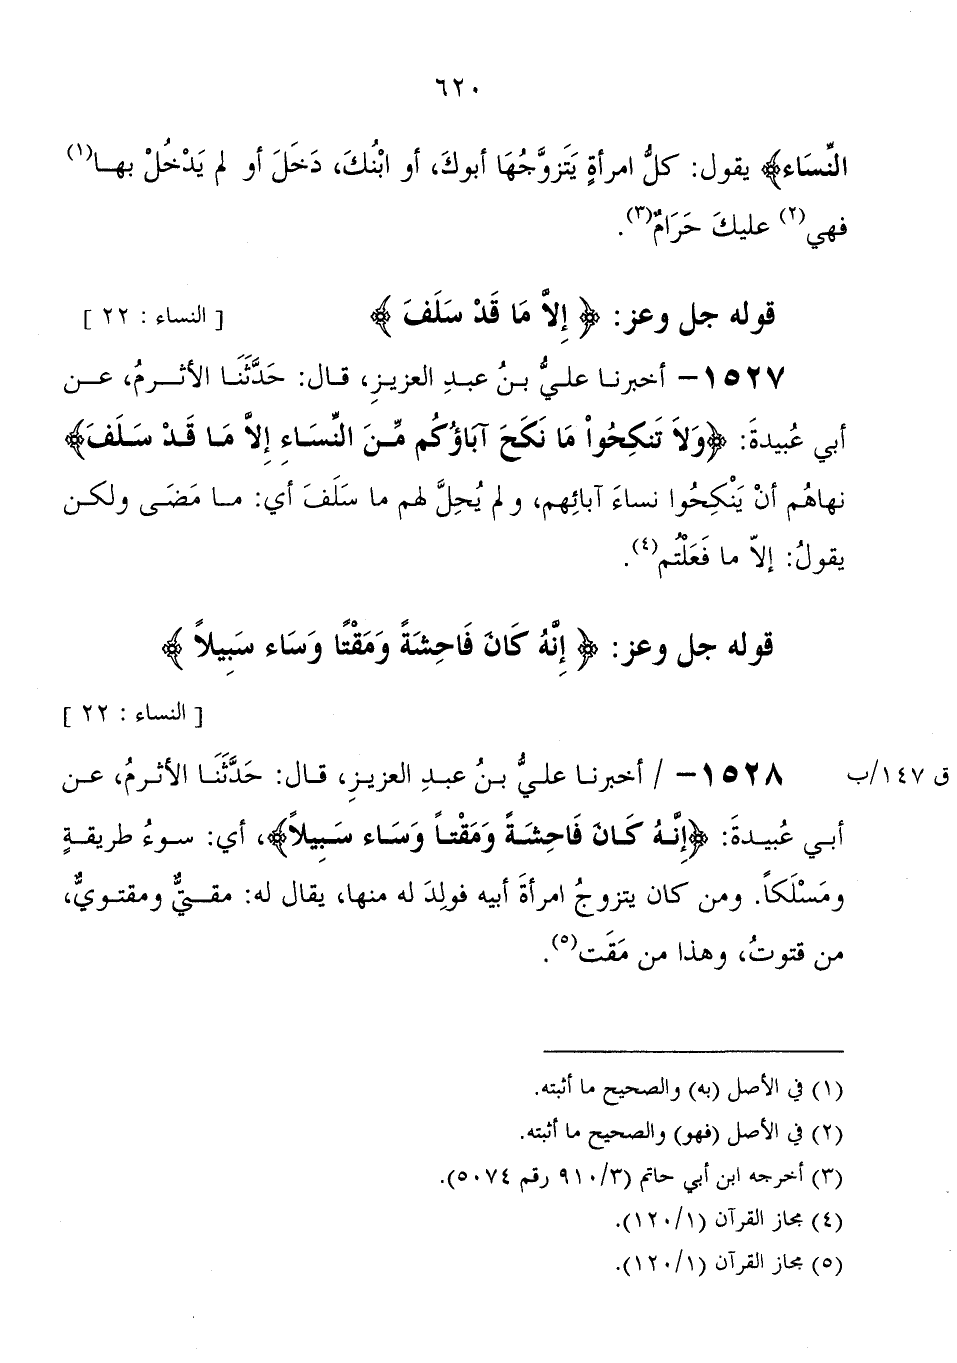 ٦٢٠
النِّسَاء﴾ يقول: كلُّ امرأةٍ يَتَزوَّجُهَا أبوكَ، أو ابْنُكَ، دَخَلَ أو لم يَدْخُلْ بهـا(١)
فهي(٢) عليكَ حَرَامٌ(٣).
قوله جل وعز: ﴿ إِلاَّ مَا قَدْ سَلَفَ ﴾ [ النساء : ٢٢ ]
١٥٢٧– أخبرنـا علـيُّ بـنُ عبـدِ العزيـزِ، قـال: حَدَّثَنَـا الأثـرمُ، عـن
أبي عُبيدةَ: ﴿وَلاَ تَنكِحُواْ مَا نَكَحَ آبَاؤُكُم مِّـنَ النِّسَـاءِ إِلاَّ مَـا قَـدْ سَـلَفَ﴾
نهاهُم أنْ يَنْكِحُوا نساءَ آبائِهم، و لم يُحِلَّ لهم ما سَلَفَ أي: مـا مَضَـى ولكـن
يقولُ: إلاّ ما فَعَلْتُم(٤).
قوله جل وعز: ﴿ إِنَّهُ كَانَ فَاحِشَةً وَمَقْتًا وَسَاء سَبِيلاً ﴾
[ النساء : ٢٢ ]
١٥٢٨– / أخبرنـا علـيُّ بـنُ عبـدِ العزيـزِ، قـال: حَدَّثَنَـا الأثـرمُ، عـن ق ١٤٧/ب
أبـي عُبيـدةَ: ﴿إِنَّـهُ كَـانَ فَاحِشَـةً وَمَقْتـاً وَسَـاء سَـبِيلاً﴾، أي: سـوءُ طريقـةٍ
ومَسْلَكاً. ومن كان يتزوجُ امرأةَ أبيه فولِدَ له منها، يقال له: مقـتيٌّ ومقتـويٌّ،
من قتوتُ، وهذا من مَقَت(٥).
(١) في الأصل (به) والصحيح ما أثبته.
(٢) في الأصل (فهو) والصحيح ما أثبته.
(٣) أخرجه ابن أبي حاتم (٩١٠/٣ رقم ٥٠٧٤).
(٤) مجاز القرآن (١٢٠/١).
(٥) مجاز القرآن (١٢٠/١).